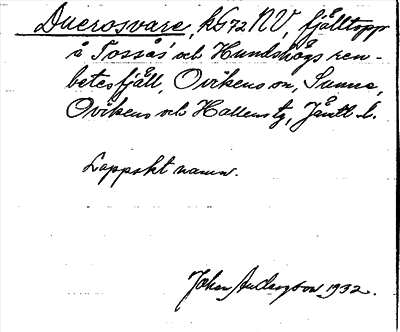 Duerosvare, kG 72 NV, fjälltopp
å Tossås och Hundshögs ren-
betesfjäll, Ovikens sn, Sunne,
Ovikens och Hallens tg, Jämtl. l.
Lappskt namn.
Johan Andersson 1932.